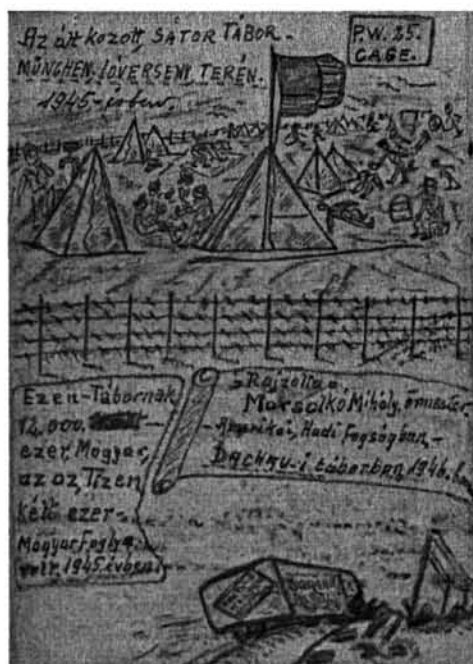 Az átkozott, SÁTOR TÁBOR-
MÜNCHEN. LÓVERSENY, TERÉN.
1945-évben.
P.W. 25.
CAGE.
Ezen-Tábornak
12.000.
ezer, Magyar,
az az, Tizen
kétt ezer-
Magyar Fogja
volt, 1945 évben
Rajzolta=
Morsolkó Mihály, őrmester
-Amerikai, Hadi fogságban-
DACHAU-i táborban, 1946.